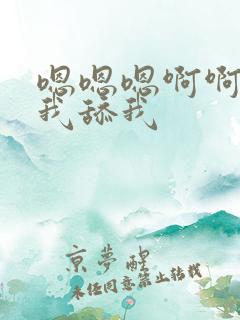 嗯嗯嗯啊啊
我舔我
京夢醒
未经同意禁止转载